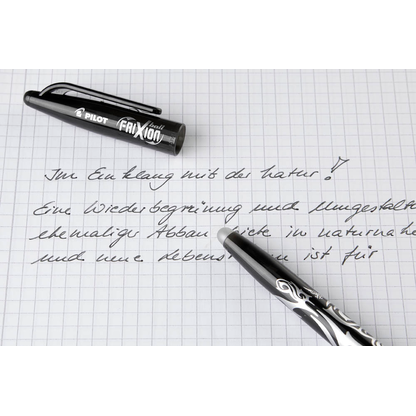 PILOT FRIXION ball
Im Einklang mit der Natur!
Eine Wiederbegrünung und Umgestaltu
ehemaliger Abbau biete in naturnahe
und neue Lebens en ist für